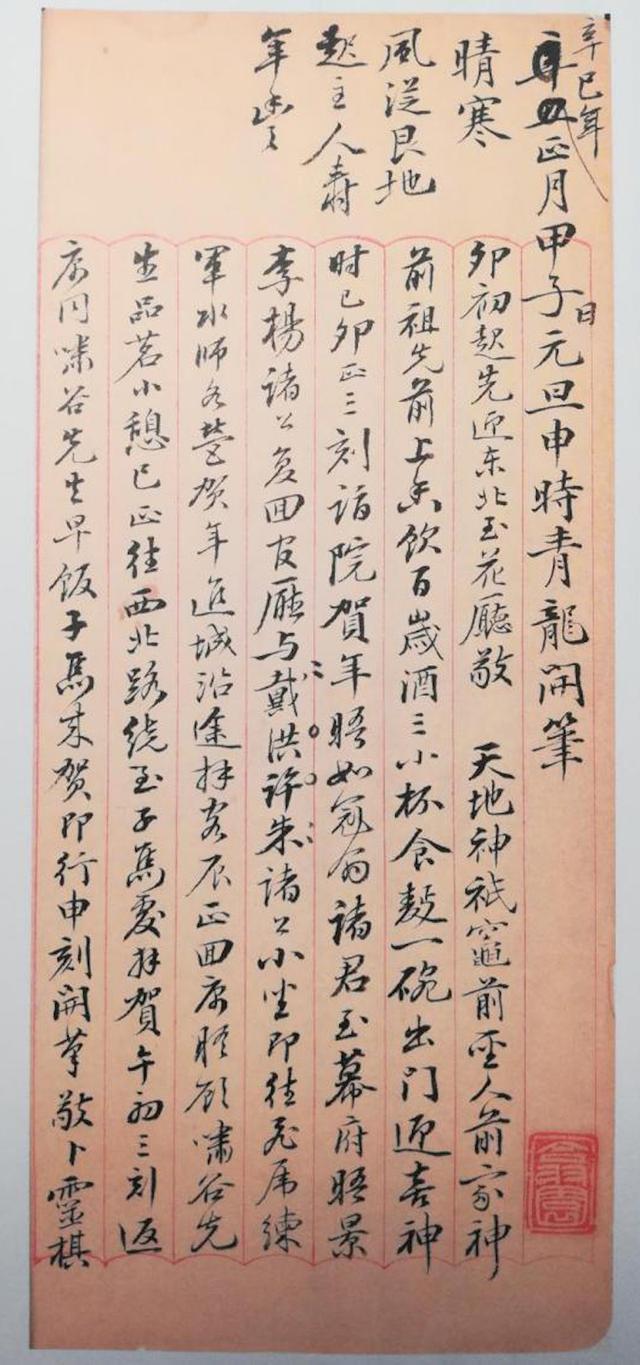 辛巳年
正月甲子日元旦申時青龍開筆
晴寒
風從艮地
起主人壽
年豐
卯初起先迎东北至花廳敬 天地神祇竈前聖人前家神
前祖先前上香飲百歲酒三小杯食麨一碗出门迎喜神
时已卯正三刻詣院賀年晤如冠翁諸君至幕府晤景
李楊诸公复回官廳与戴洪許朱诸公小坐即往飛虎練
軍水师各营贺年進城沿途拜客辰正回寓晤顾嘯谷先
生品茗小憩巳正往西北路绕至子馬處拜賀午初三刻返
寓同嘯谷先生早飯子馬来贺即行申刻開筆敬卜靈棋